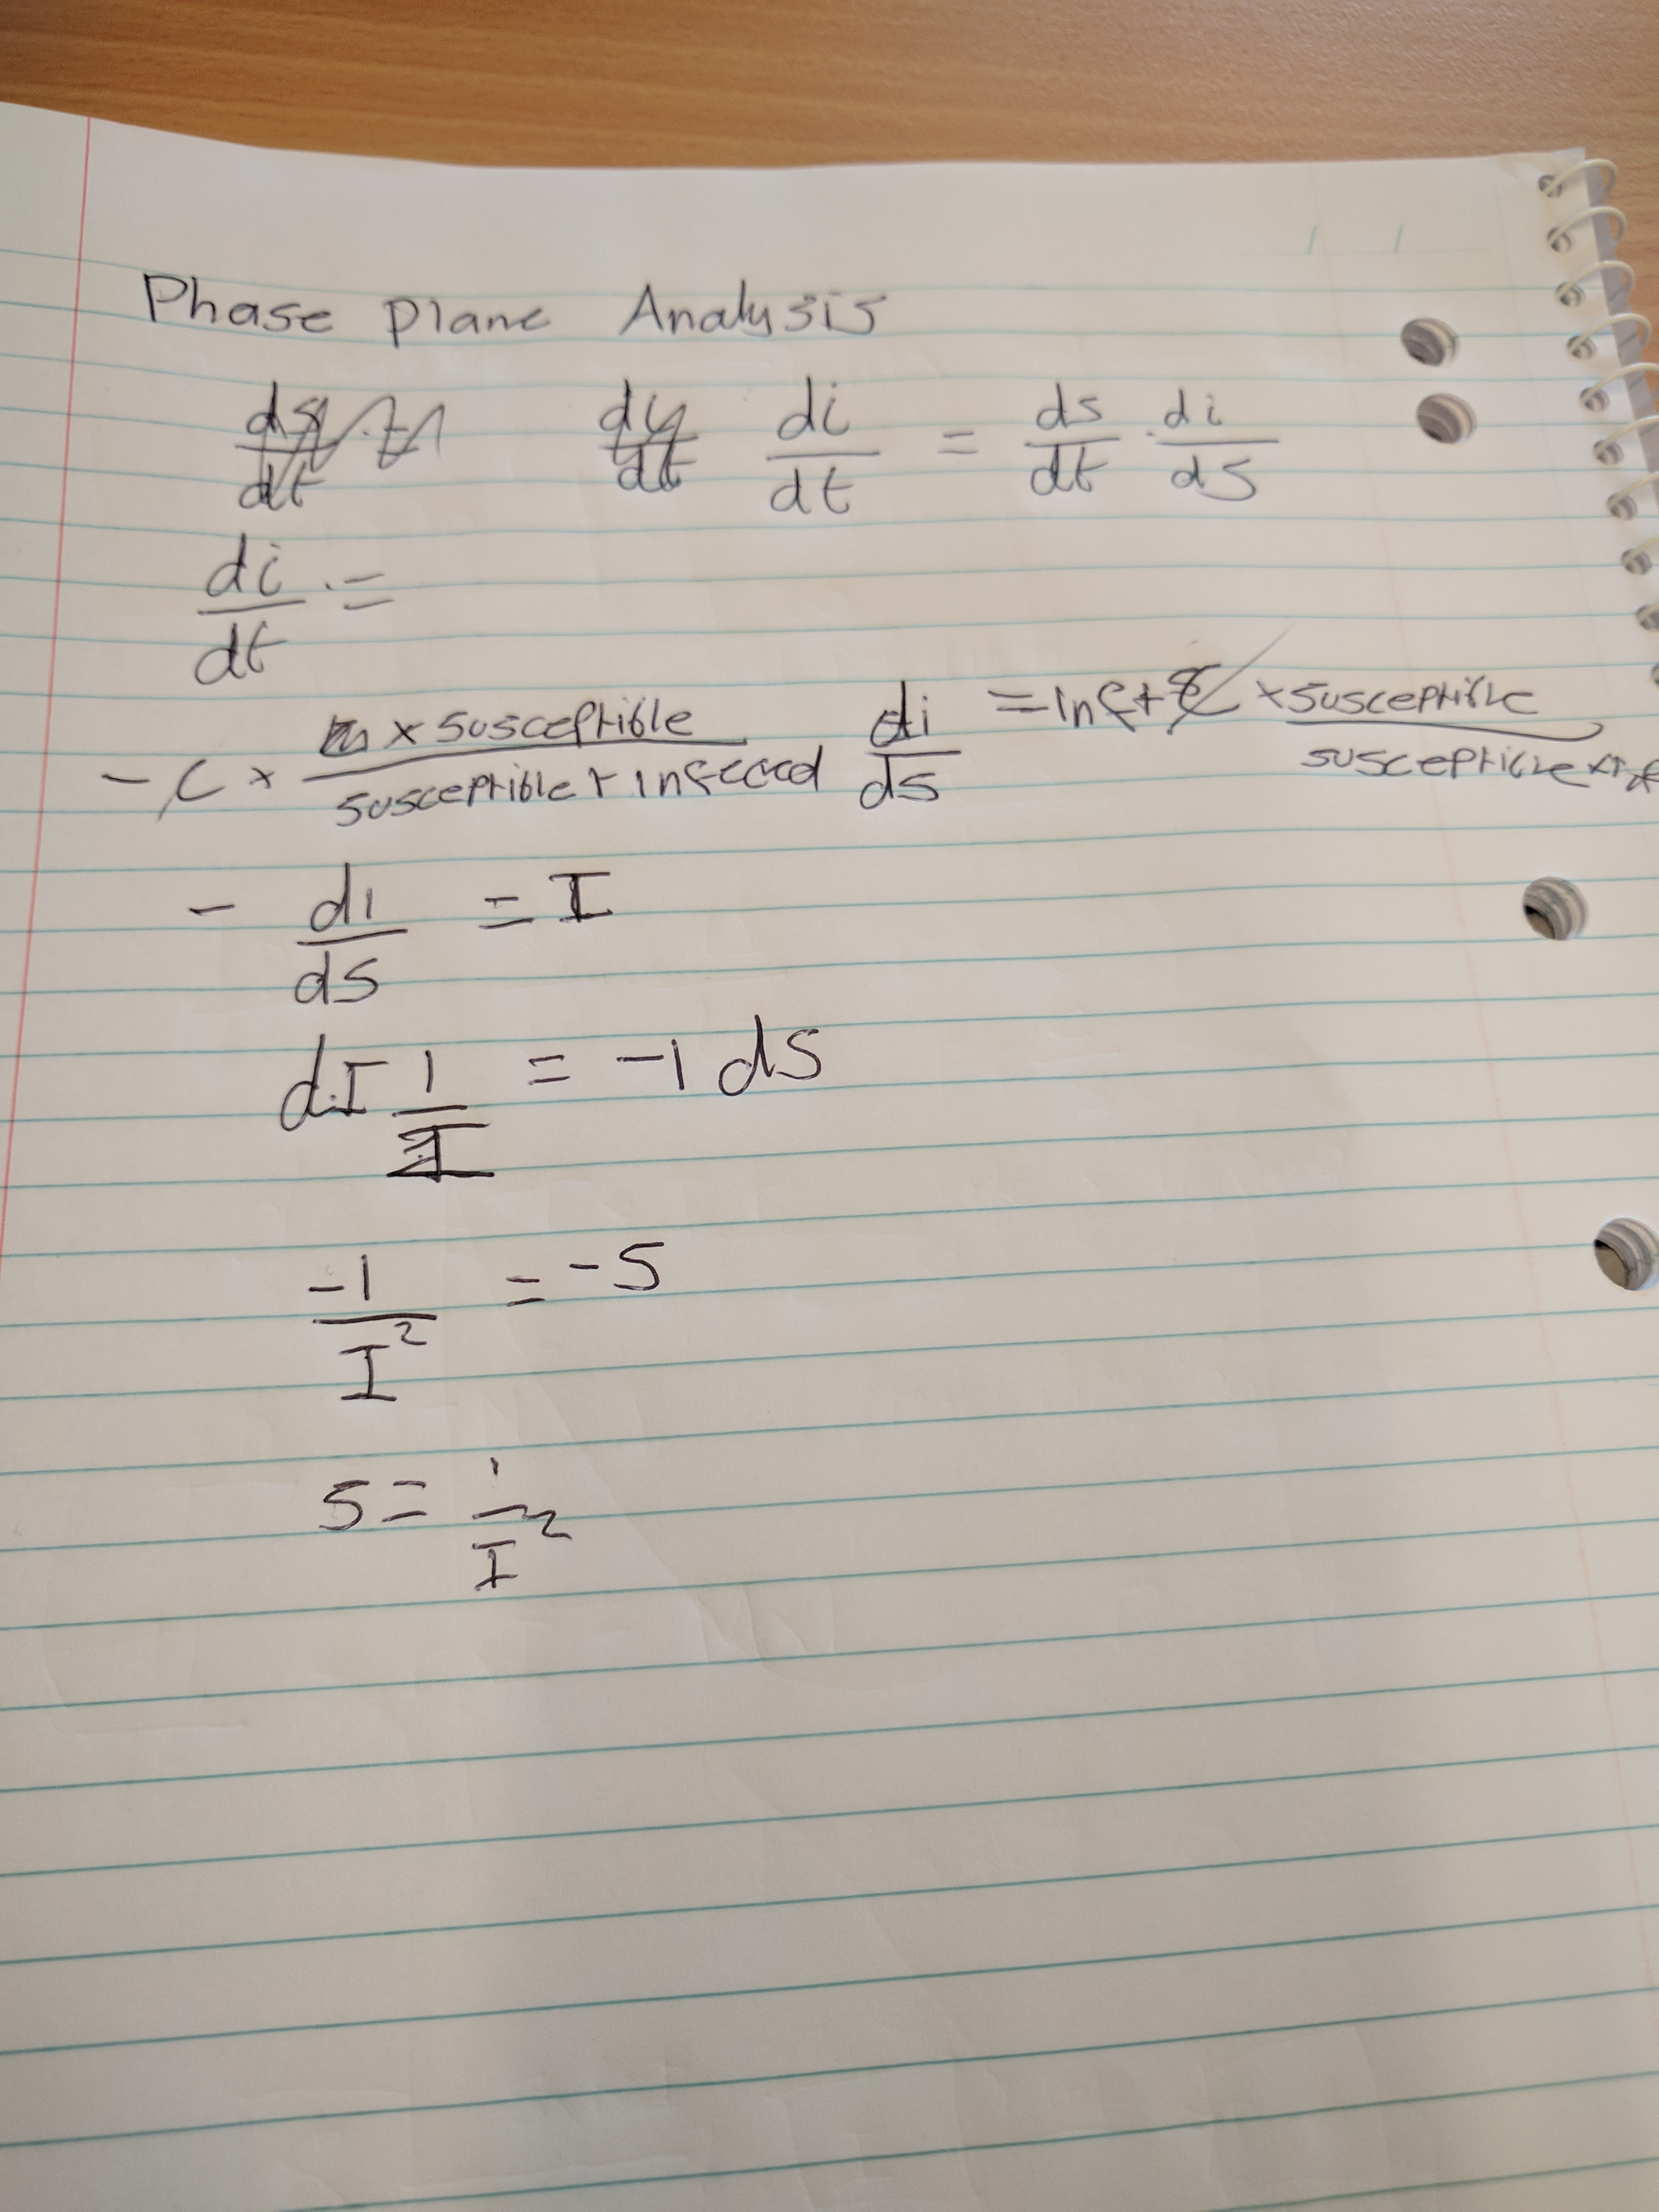 Phase Plane Analysis
di/dt = ds/dt · di/ds
di/dt =
- c × × susceptible / susceptible + infected di/ds = inf + × susceptible / susceptible +
- di/ds = I
dI 1/I = -1 ds
-1/I² = -S
S = 1/I²